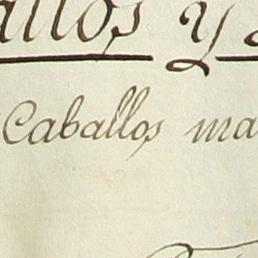 allos y
Caballos ma